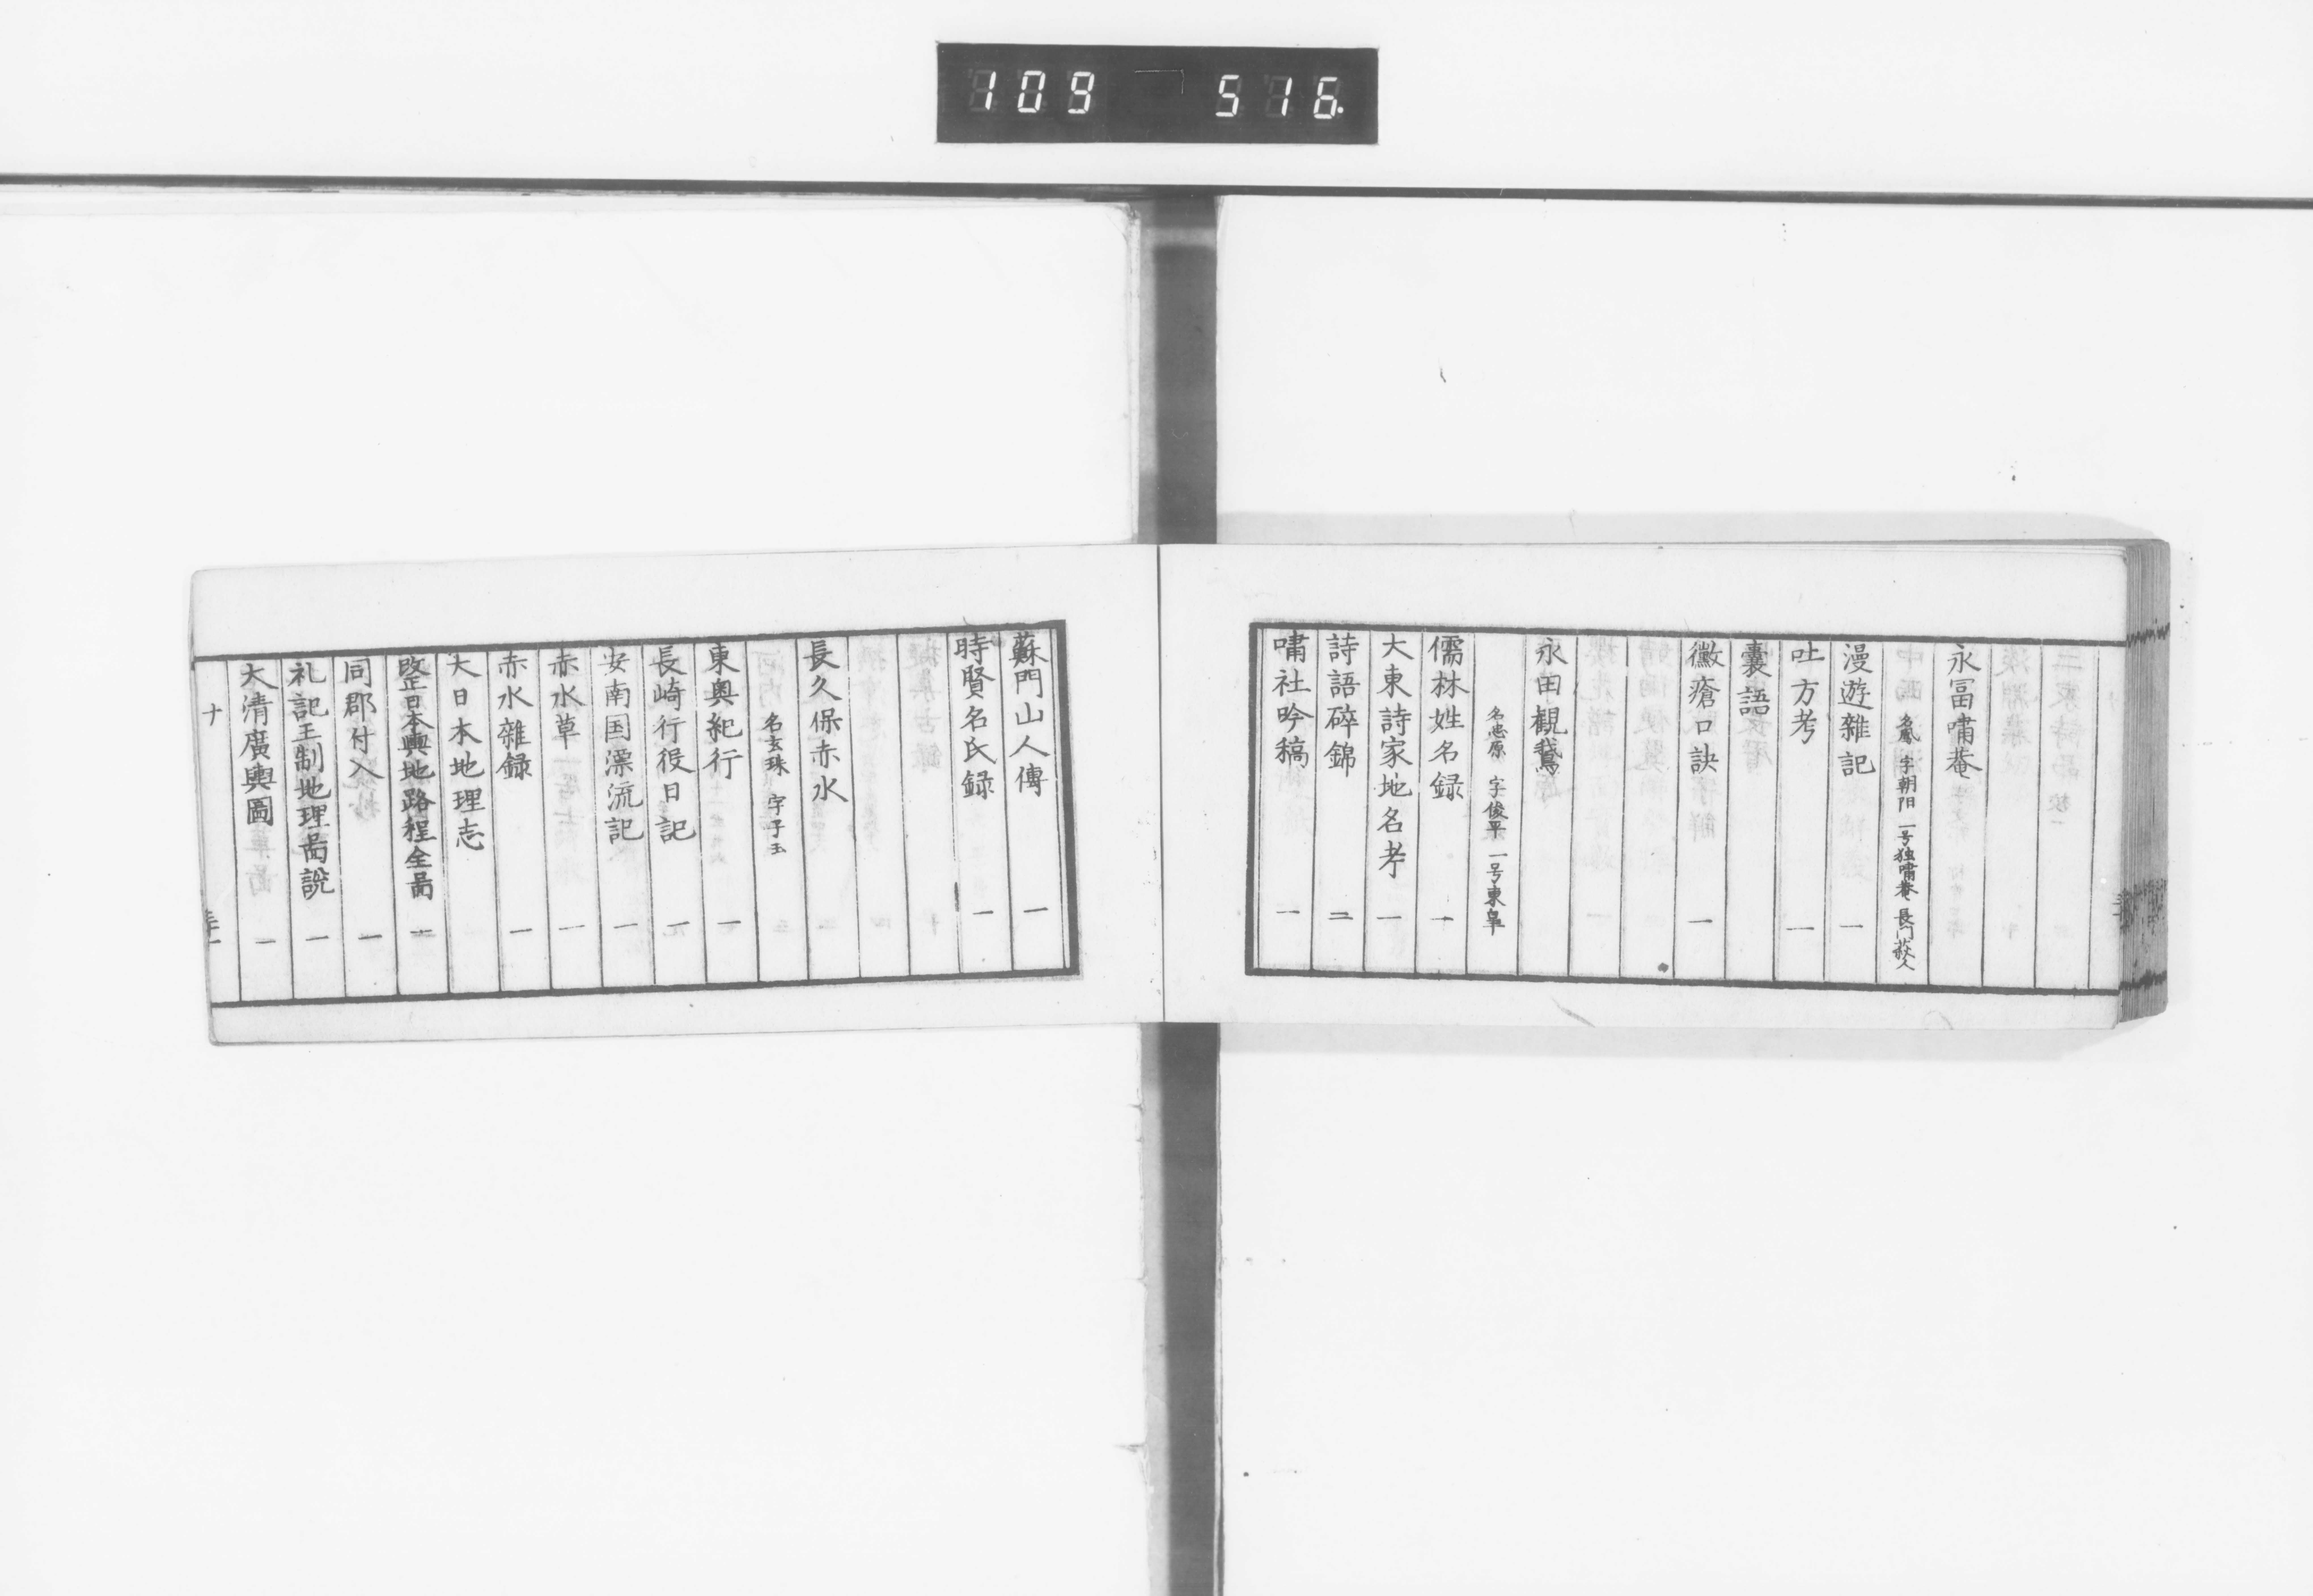 109 516
永冨嘯菴
名鳳 字朝阳 一号独嘯菴 長門萩人
漫遊雜記 一
吐方考 一
囊語
黴瘡口訣 一
永田觀鵞
名忠原 字俊平 一号東皐
儒林姓名録 一
大東詩家地名考 一
詩語碎錦 二
嘯社吟稿 一
蘇門山人傳 一
時賢名氏録 一
長久保赤水
名玄珠 字子玉
東奥紀行 一
長崎行役日記 一
安南国漂流記 一
赤水草 一
赤水雜録 一
大日本地理志
改正日本輿地路程全啚 一
同郡付入 一
礼記王制地理啚說 一
大清廣輿圖 一
ナ